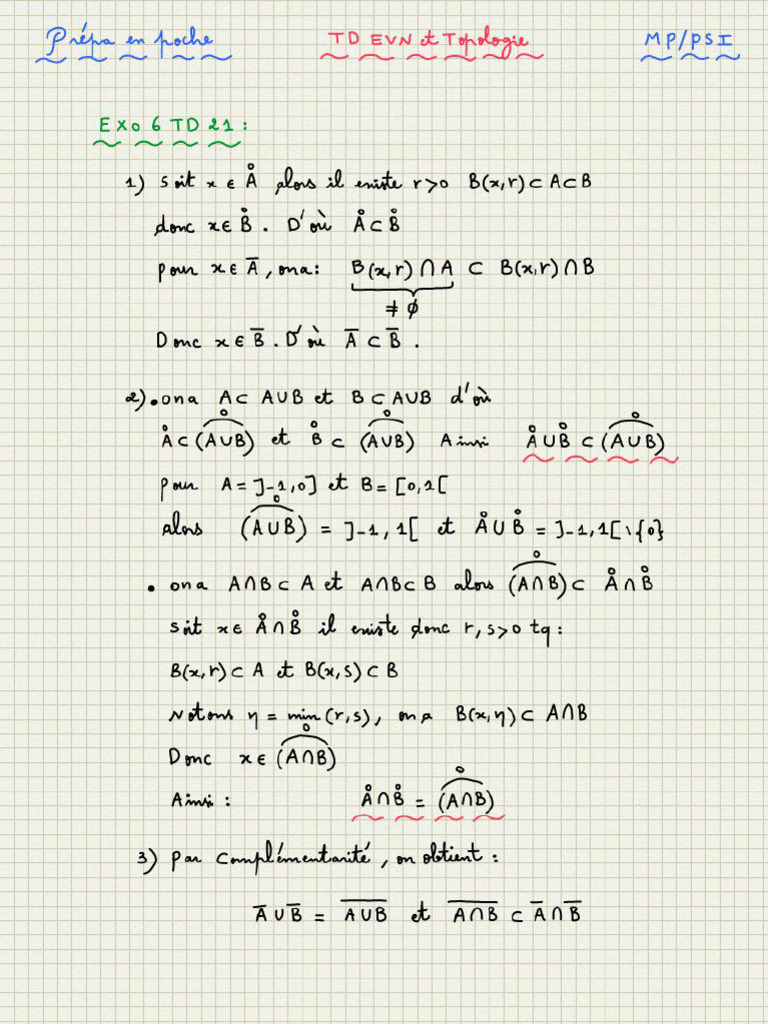 Prépa en poche
TD EVN et Topologie
MP/PSI
Exo 6 TD 21 :
1) Soit x ∈ Å alors il existe r>0 B(x,r) ⊂ A ⊂ B
donc x ∈ B̊ . D'où Å ⊂ B̊
pour x ∈ A̅ , on a : B(x,r) ∩ A ⊂ B(x,r) ∩ B
≠ ∅
Donc x ∈ B̅ . D'où A̅ ⊂ B̅ .
2) • on a A ⊂ A∪B et B ⊂ A∪B d'où
Å ⊂ (A∪B)° et B̊ ⊂ (A∪B)° Ainsi Å ∪ B̊ ⊂ (A∪B)°
pour A = ]-1,0] et B = [0,1[
alors (A∪B)° = ]-1,1[ et Å ∪ B̊ = ]-1,1[ \ {0}
• on a A∩B ⊂ A et A∩B ⊂ B alors (A∩B)° ⊂ Å ∩ B̊
Soit x ∈ Å ∩ B̊ il existe donc r, s>0 tq :
B(x,r) ⊂ A et B(x,s) ⊂ B
Notons η = min(r,s), on a B(x,η) ⊂ A∩B
Donc x ∈ (A∩B)°
Ainsi : Å ∩ B̊ = (A∩B)°
3) Par complémentarité, on obtient :
A̅ ∪ B̅ = A̅∪̅B̅ et A̅∩̅B̅ ⊂ A̅ ∩ B̅